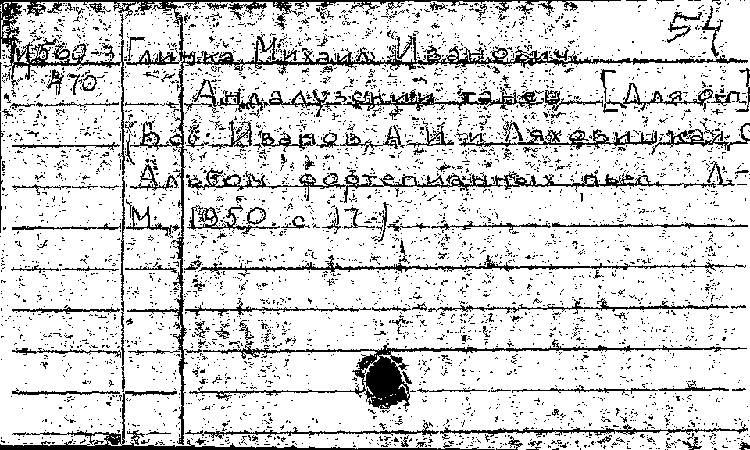 54
М599-3 Глинка Михаил Иванович.
А70
Андалузский танец. [Для фп]
(В сб: Иванов, А. И. и Ляховицкая, С
Альбом фортепианных пьес. Л.-
М., 1950. с 17-).